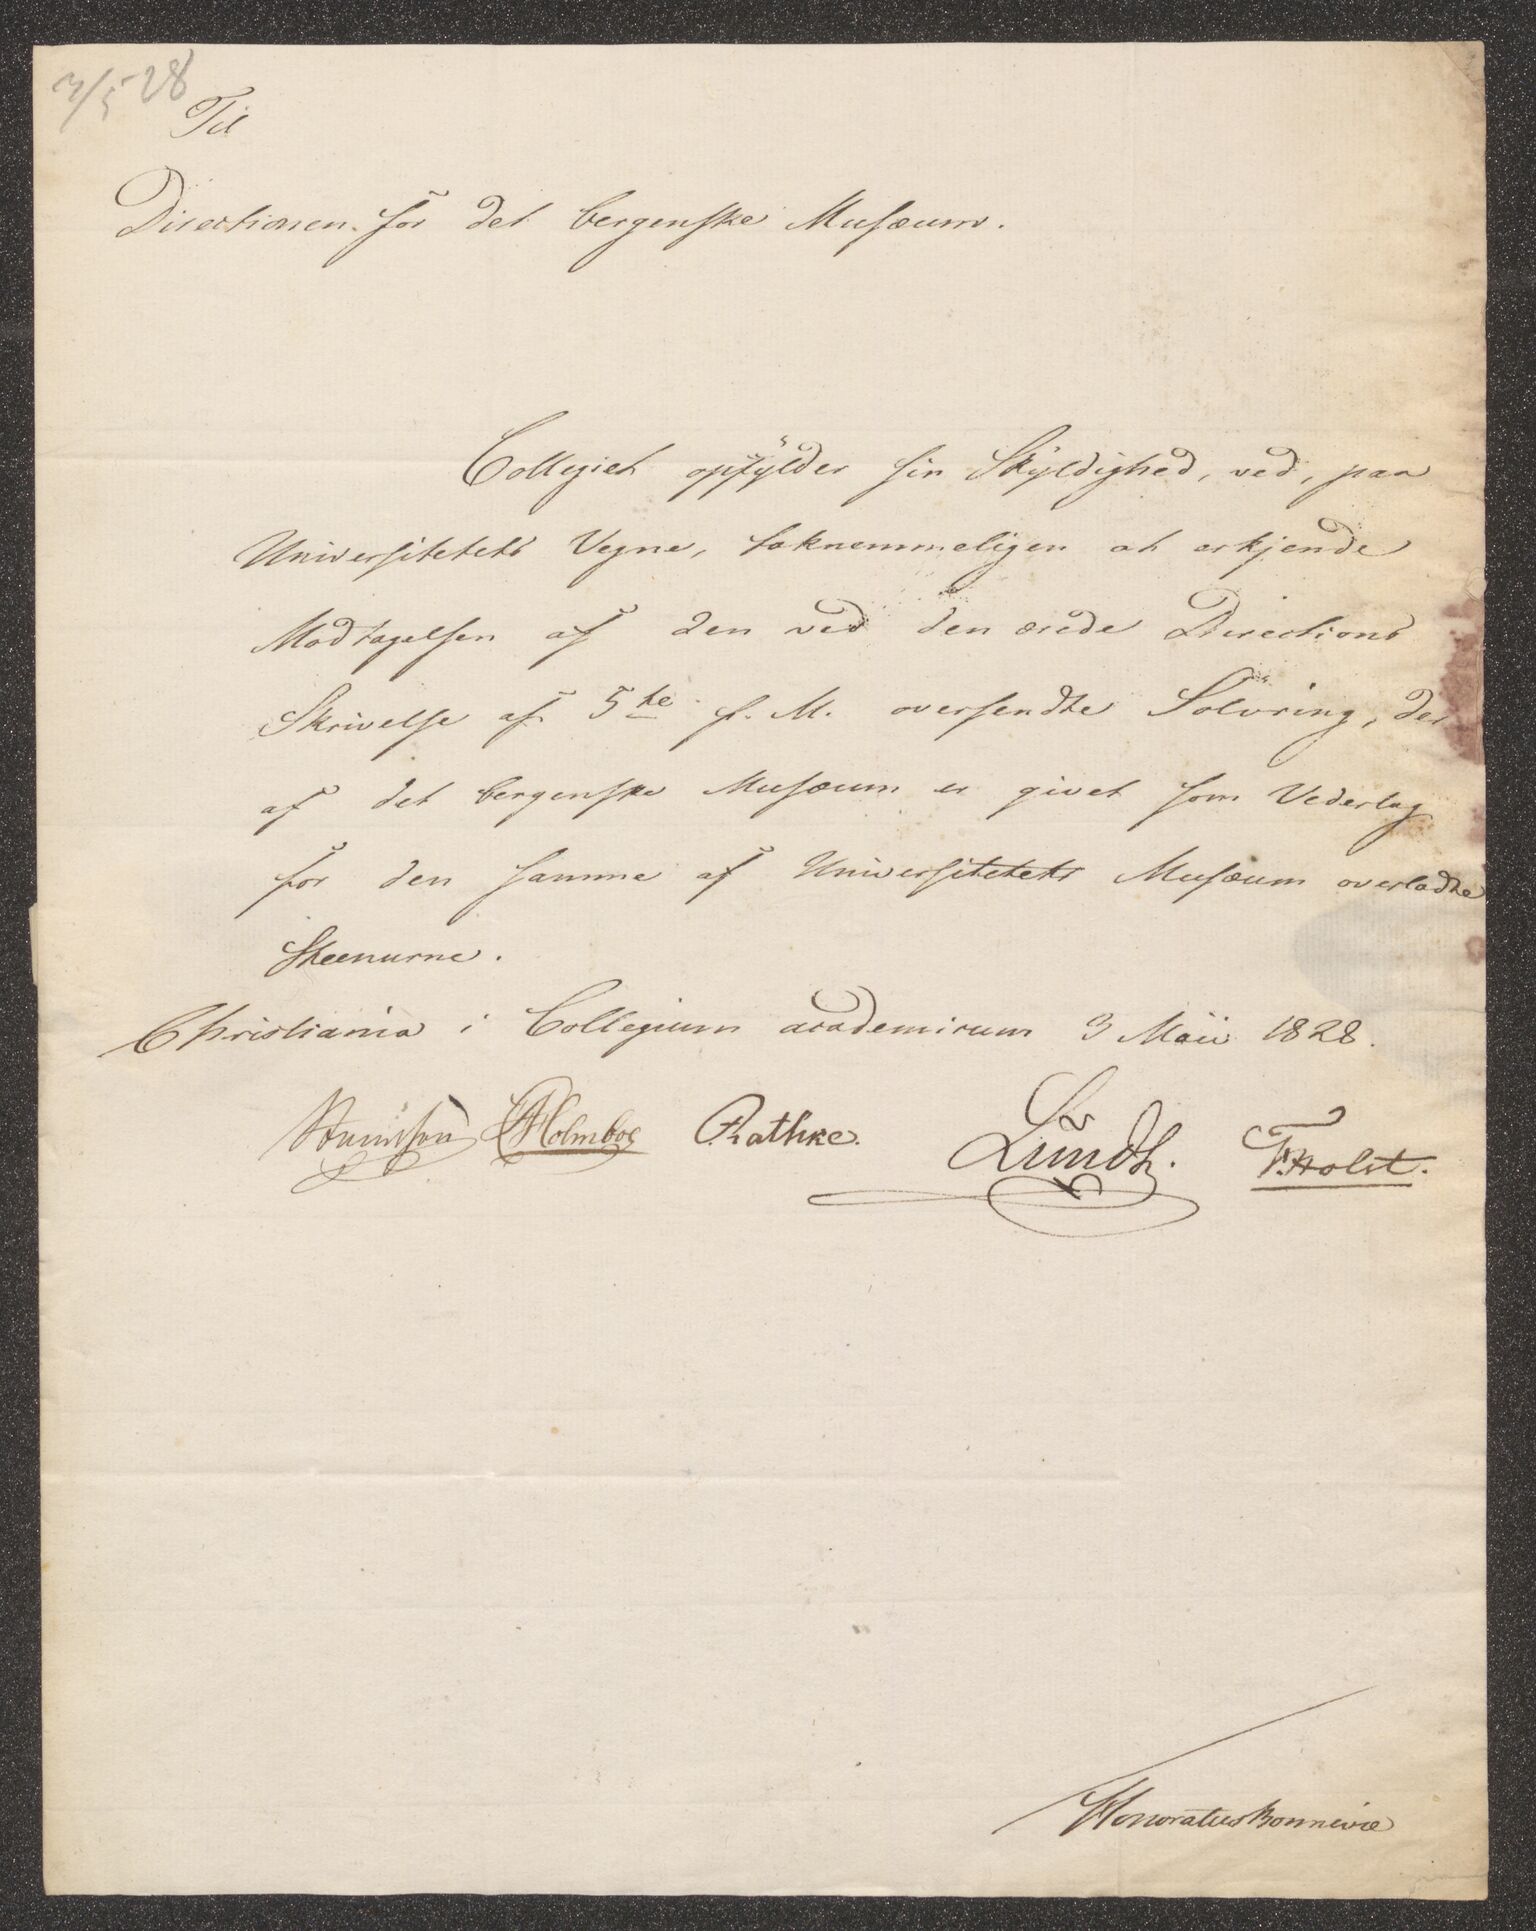 3/5 28
Til
Directionen for det bergenske Musæum.
Collegiet opfÿlder sin Skÿldighed, ved, paa
Universitetets Vegne, taknemmeligen at erkjende
Modtagelsen af den ved den ærede Directions
Skrivelse af 5te f. M. oversendte Solvring, der
af det bergenske Musæum er givet som Vederlag
for den samme af Universitetets Musæum overladte
Steenurne.
Christiania i Collegium academicum 3 Maii 1828.
Steenersen Holmboe Rathke. Lundh. F. Holst.
Honoratus Bonnevie